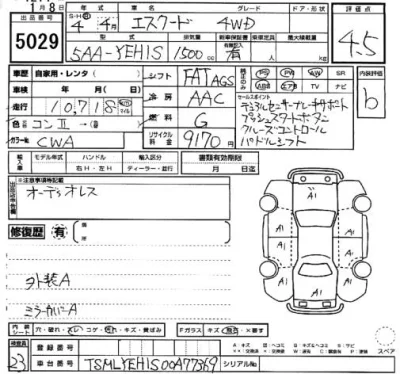 1月8日
出品番号 年式 車名 グレード ドア・形状
5029
S・H・R 4年4月 エスクード 4WD 4.5
型式 排気量 車検定員 最大積載量
5AA-YEH1S 1500cc 有 kg
車歴 自家用・レンタ シフト FAT AGS PS PW SR 内装評価
車検 年 月 冷房 AAC AB TV ナビ b
走行 10,718 燃料 G セールスポイント
デュアルセンサーブレーキサポート
プッシュスタートボタン
クルーズコントロール
パドルシフト
色 コンⅡ
カラーNo. CWA リサイクル料金 9170円
輸入車 モデル年式 ハンドル 輸入区分 書類有効期限
年 右H・左H ディーラー・並行 月 日迄
※注意事項特記欄
オーディオレス
修復歴 有
外装A
ミラーカバーA
A1
A1
A1
A1
A1
A1
内装 シート 穴・破れ・スレ・コゲ・汚れ・キズ・黄ばみ Fガラス キズ 飛石 ×要す スペア
検査員 23 登録番号
車台番号 TSMLYEH1S00A77369 シリアルNo.